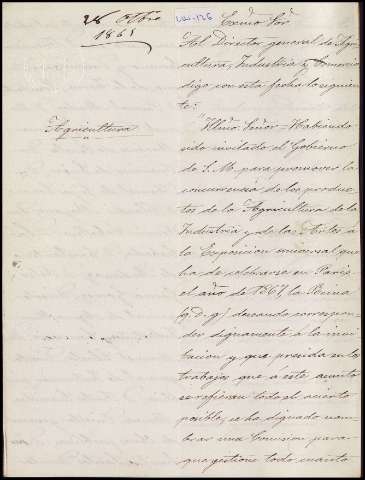 28 Octbre
1865
Excmo Sor
Al Director general de Agri
cultura, Industria y Comercio
digo con esta fecha lo siguien
te:
Agricultura
"Illmo. Señor = Habiendo
sido invitado el Gobierno
de S. M. para promover la
concurrencia de los produc
tos de la Agricultura de la
Industria y de las Artes á
la Exposicion universal que
ha de celebrarse en Paris
el año de 1867, la Reina
(q. D. g.) deseando correspon
der dignamente á la invi
tacion y que presida en los
trabajos que á este asunto
se refieran todo el acierto
posible, se ha dignado nom
brar una Comision para
que gestione todo cuanto